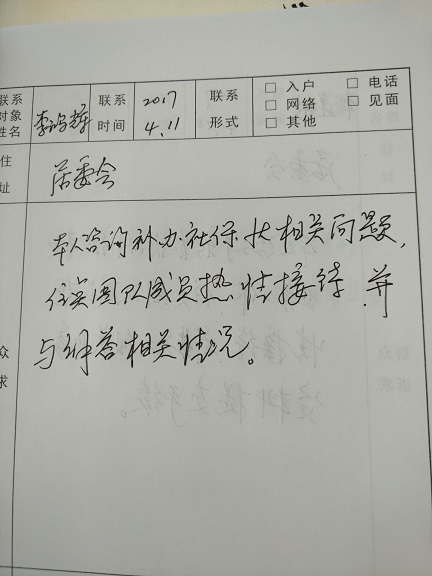 联系对象姓名 李鸿辉 联系时间 2017 4.11 联系形式 □ 入户 □ 电话 □ 网络 □ 见面 □ 其他
住址 居委会
本人咨询补办社保卡相关问题,
团队成员热情接待,并
与解答相关情况。
众
求